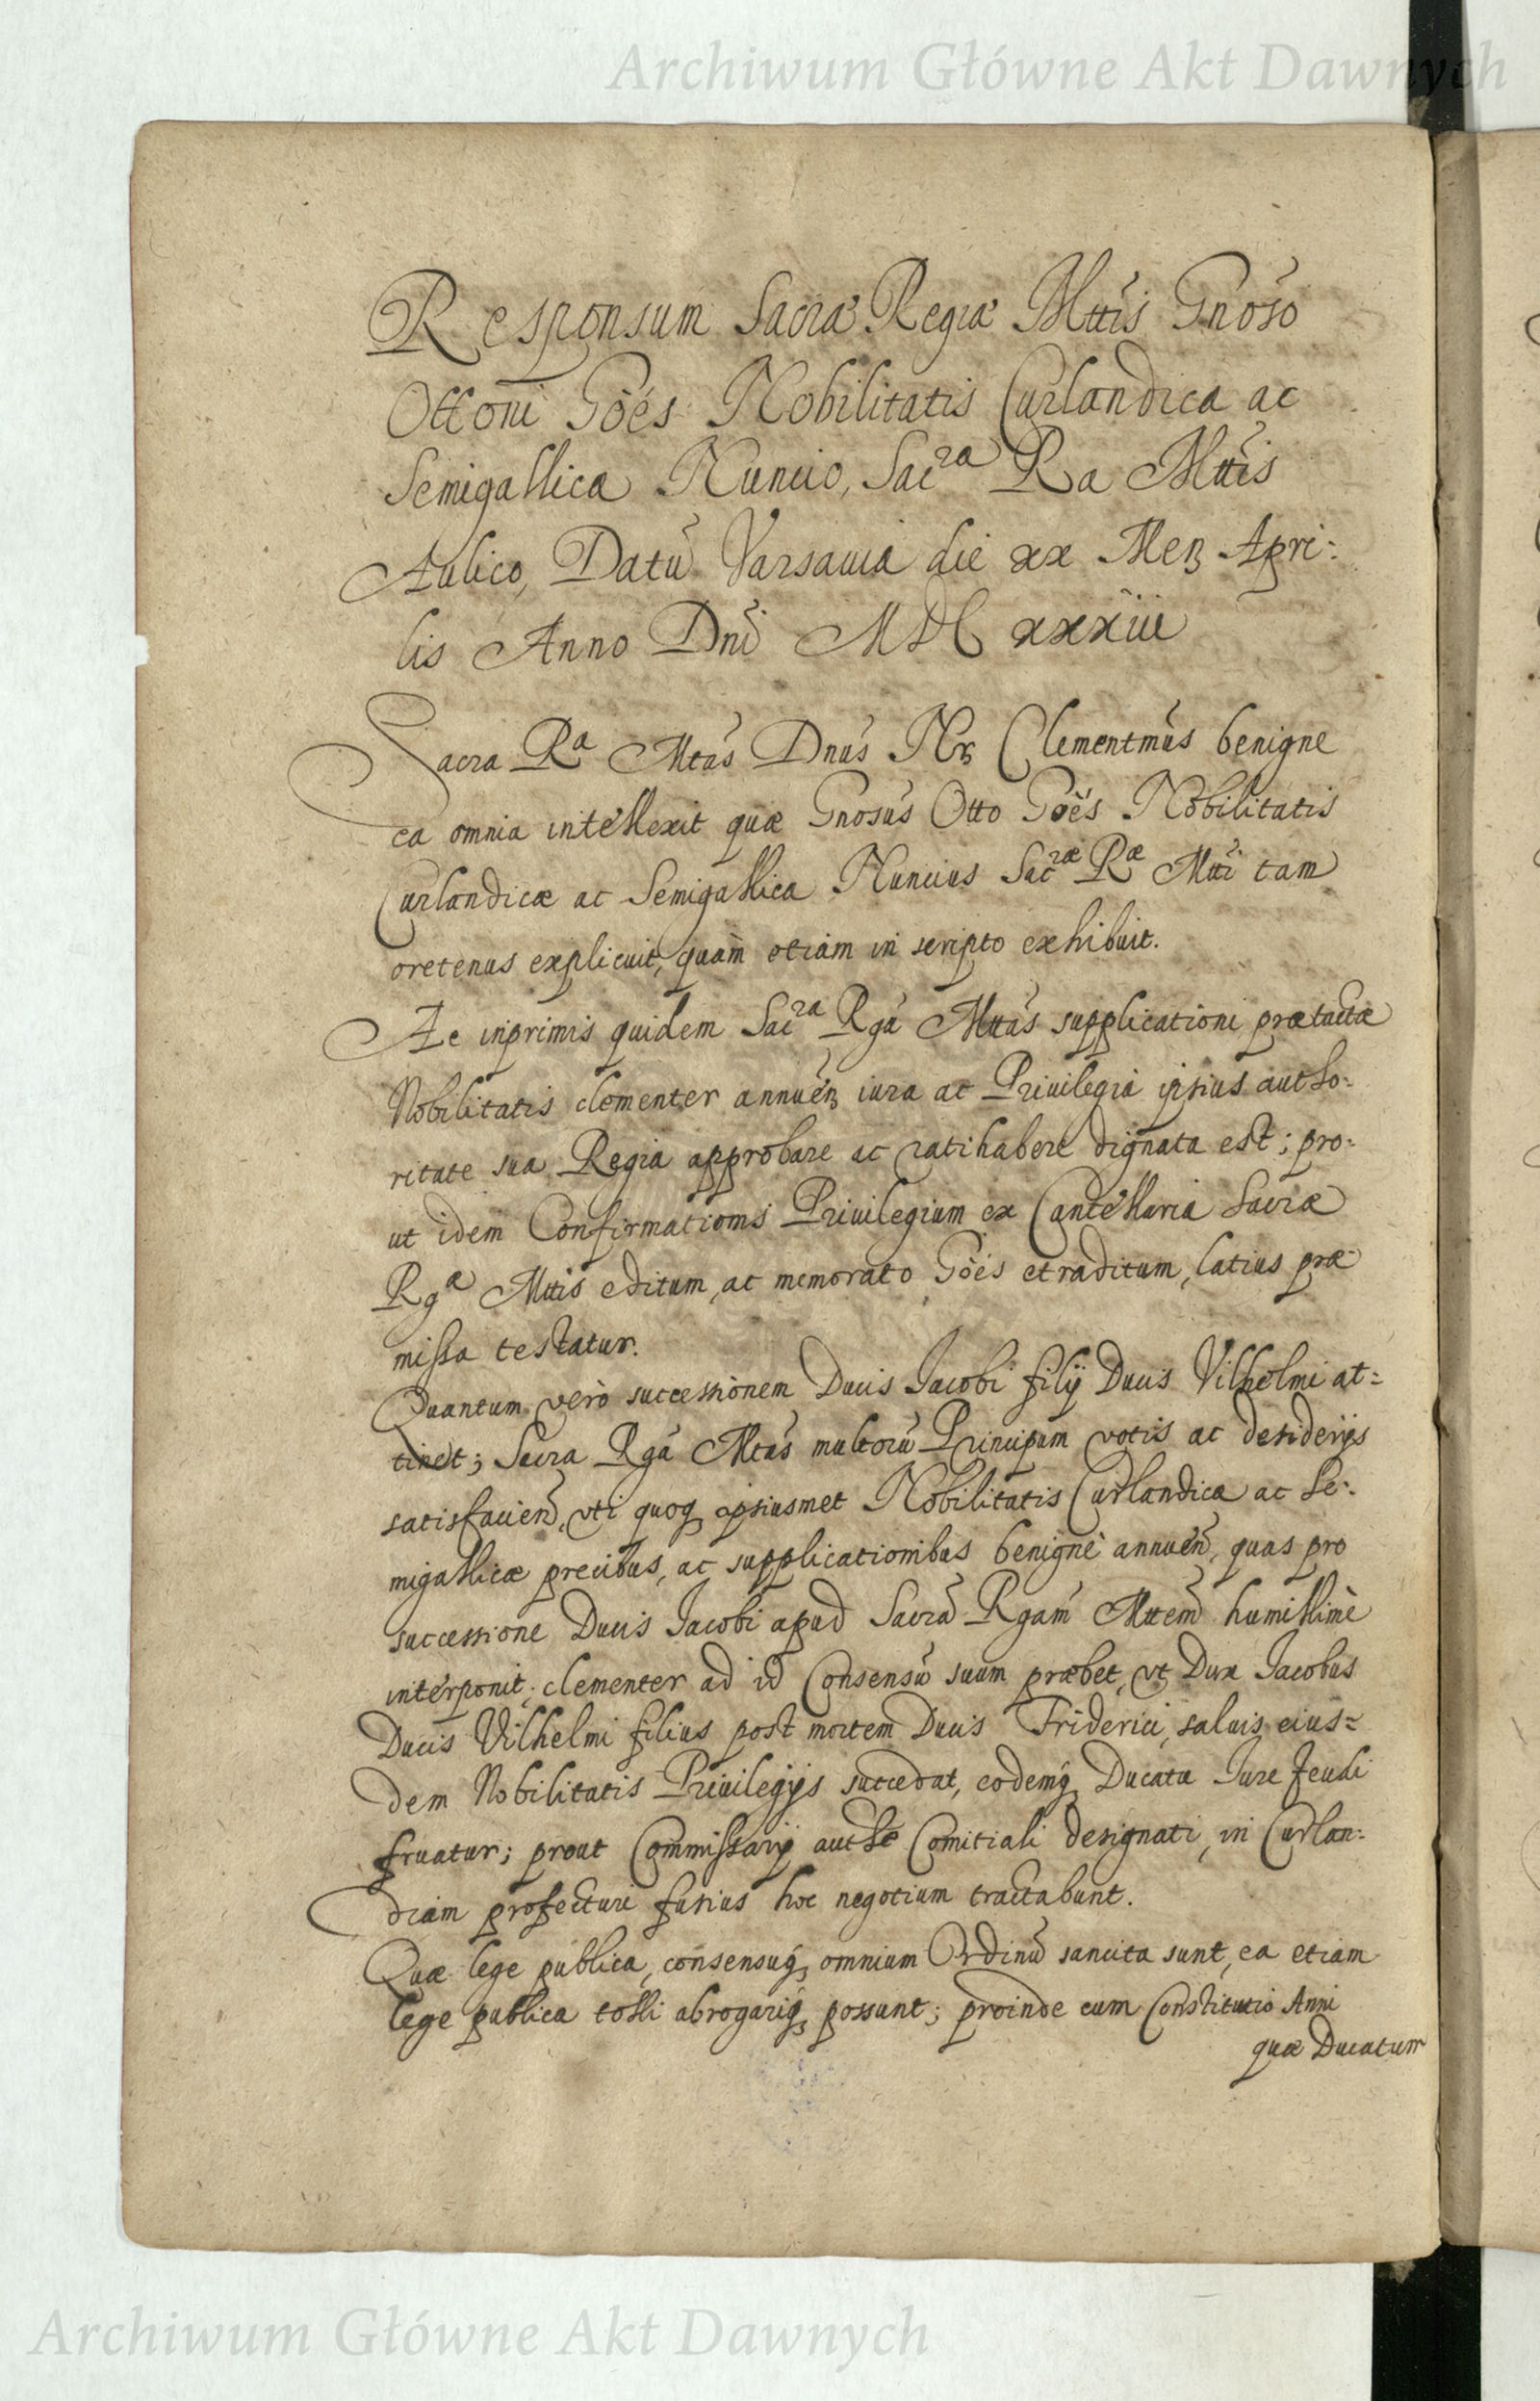 Archiwum Główne Akt Dawnych
Responsum Sacræ Regiæ Mttis Gnoso
Ottoni Göés Nobilitatis Curlandicæ ac
Semigallicæ Nuncio, Sacræ Ræ Mttis
Aulico, Datū Varsauiæ die xx Menʒ Apri:
lis Anno Dni MDC xxxiii
Sacra Ra Mtas Dnus Nʀ Clementmus benigne
ea omnia intellexit quæ Gnosus Otto Göés Nobilitatis
Curlandicæ ac Semigallicæ Nuncius Sacræ Ræ Mtti tam
oretenus explicuit, quàm etiam in scripto exhibuit.
Ac inprimis quidem Sacra Rga Mttas supplicationi prætactæ
Nobilitatis clementer annuēn iura ac Priuilegia ipsius autho:
ritate sua Regia approbare ac ratihabere dignata est; pro:
ut idem Confirmationis Priuilegium ex Cancellaria Sacræ
Rgæ Mttis editum, ac memorato Göés extraditum, latius præ
missa testatur.
Quantum verò successionem Ducis Jacobi filij Ducis Vilhelmi at:
tinet; Sacra Rga Mtas multorū Principum votis ac desiderijs
satisfaciēn, vti quoq ipsiusmet Nobilitatis Curlandicæ ac Se:
migallicæ precibus, ac supplicationibus benignè annuēn, quas pro
successione Ducis Jacobi apud Sacrā Rgam Mttem humillimè
interponit; clementer ad id Consensū suum præbet, vt Dux Jacobus
Ducis Vilhelmi filius post mortem Ducis Friderici, saluis eius=
dem Nobilitatis Priuilegijs succedat, eodemq Ducatu Jure feudi
fruatur; prout Commissarij authe Comitiali designati, in Curlan:
diam profecturi fusius hoc negotium tractabunt.
Quæ lege publica, consensuq omnium Ordinū sancita sunt, ea etiam
lege publica tolli abrogariq possunt; proinde cum Constitutio Anni
quæ Ducatum
Archiwum Główne Akt Dawnych